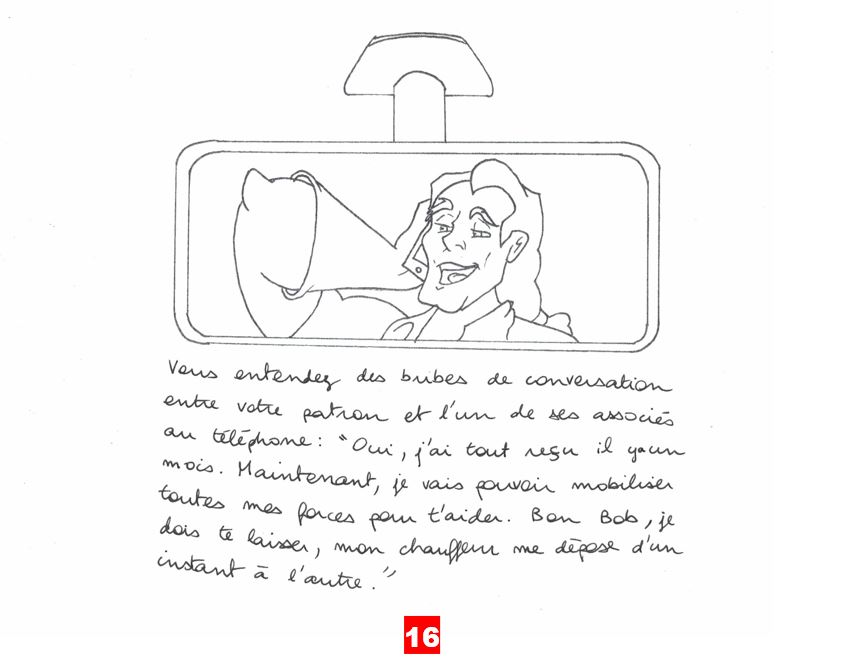 Vous entendez des bribes de conversation
entre votre patron et l'un de ses associés
au téléphone : "Oui, j'ai tout reçu il ya un
mois. Maintenant, je vais pouvoir mobiliser
toutes mes forces pour t'aider. Bon Bob, je
dois te laisser, mon chauffeur me dépose d'un
instant à l'autre."
16